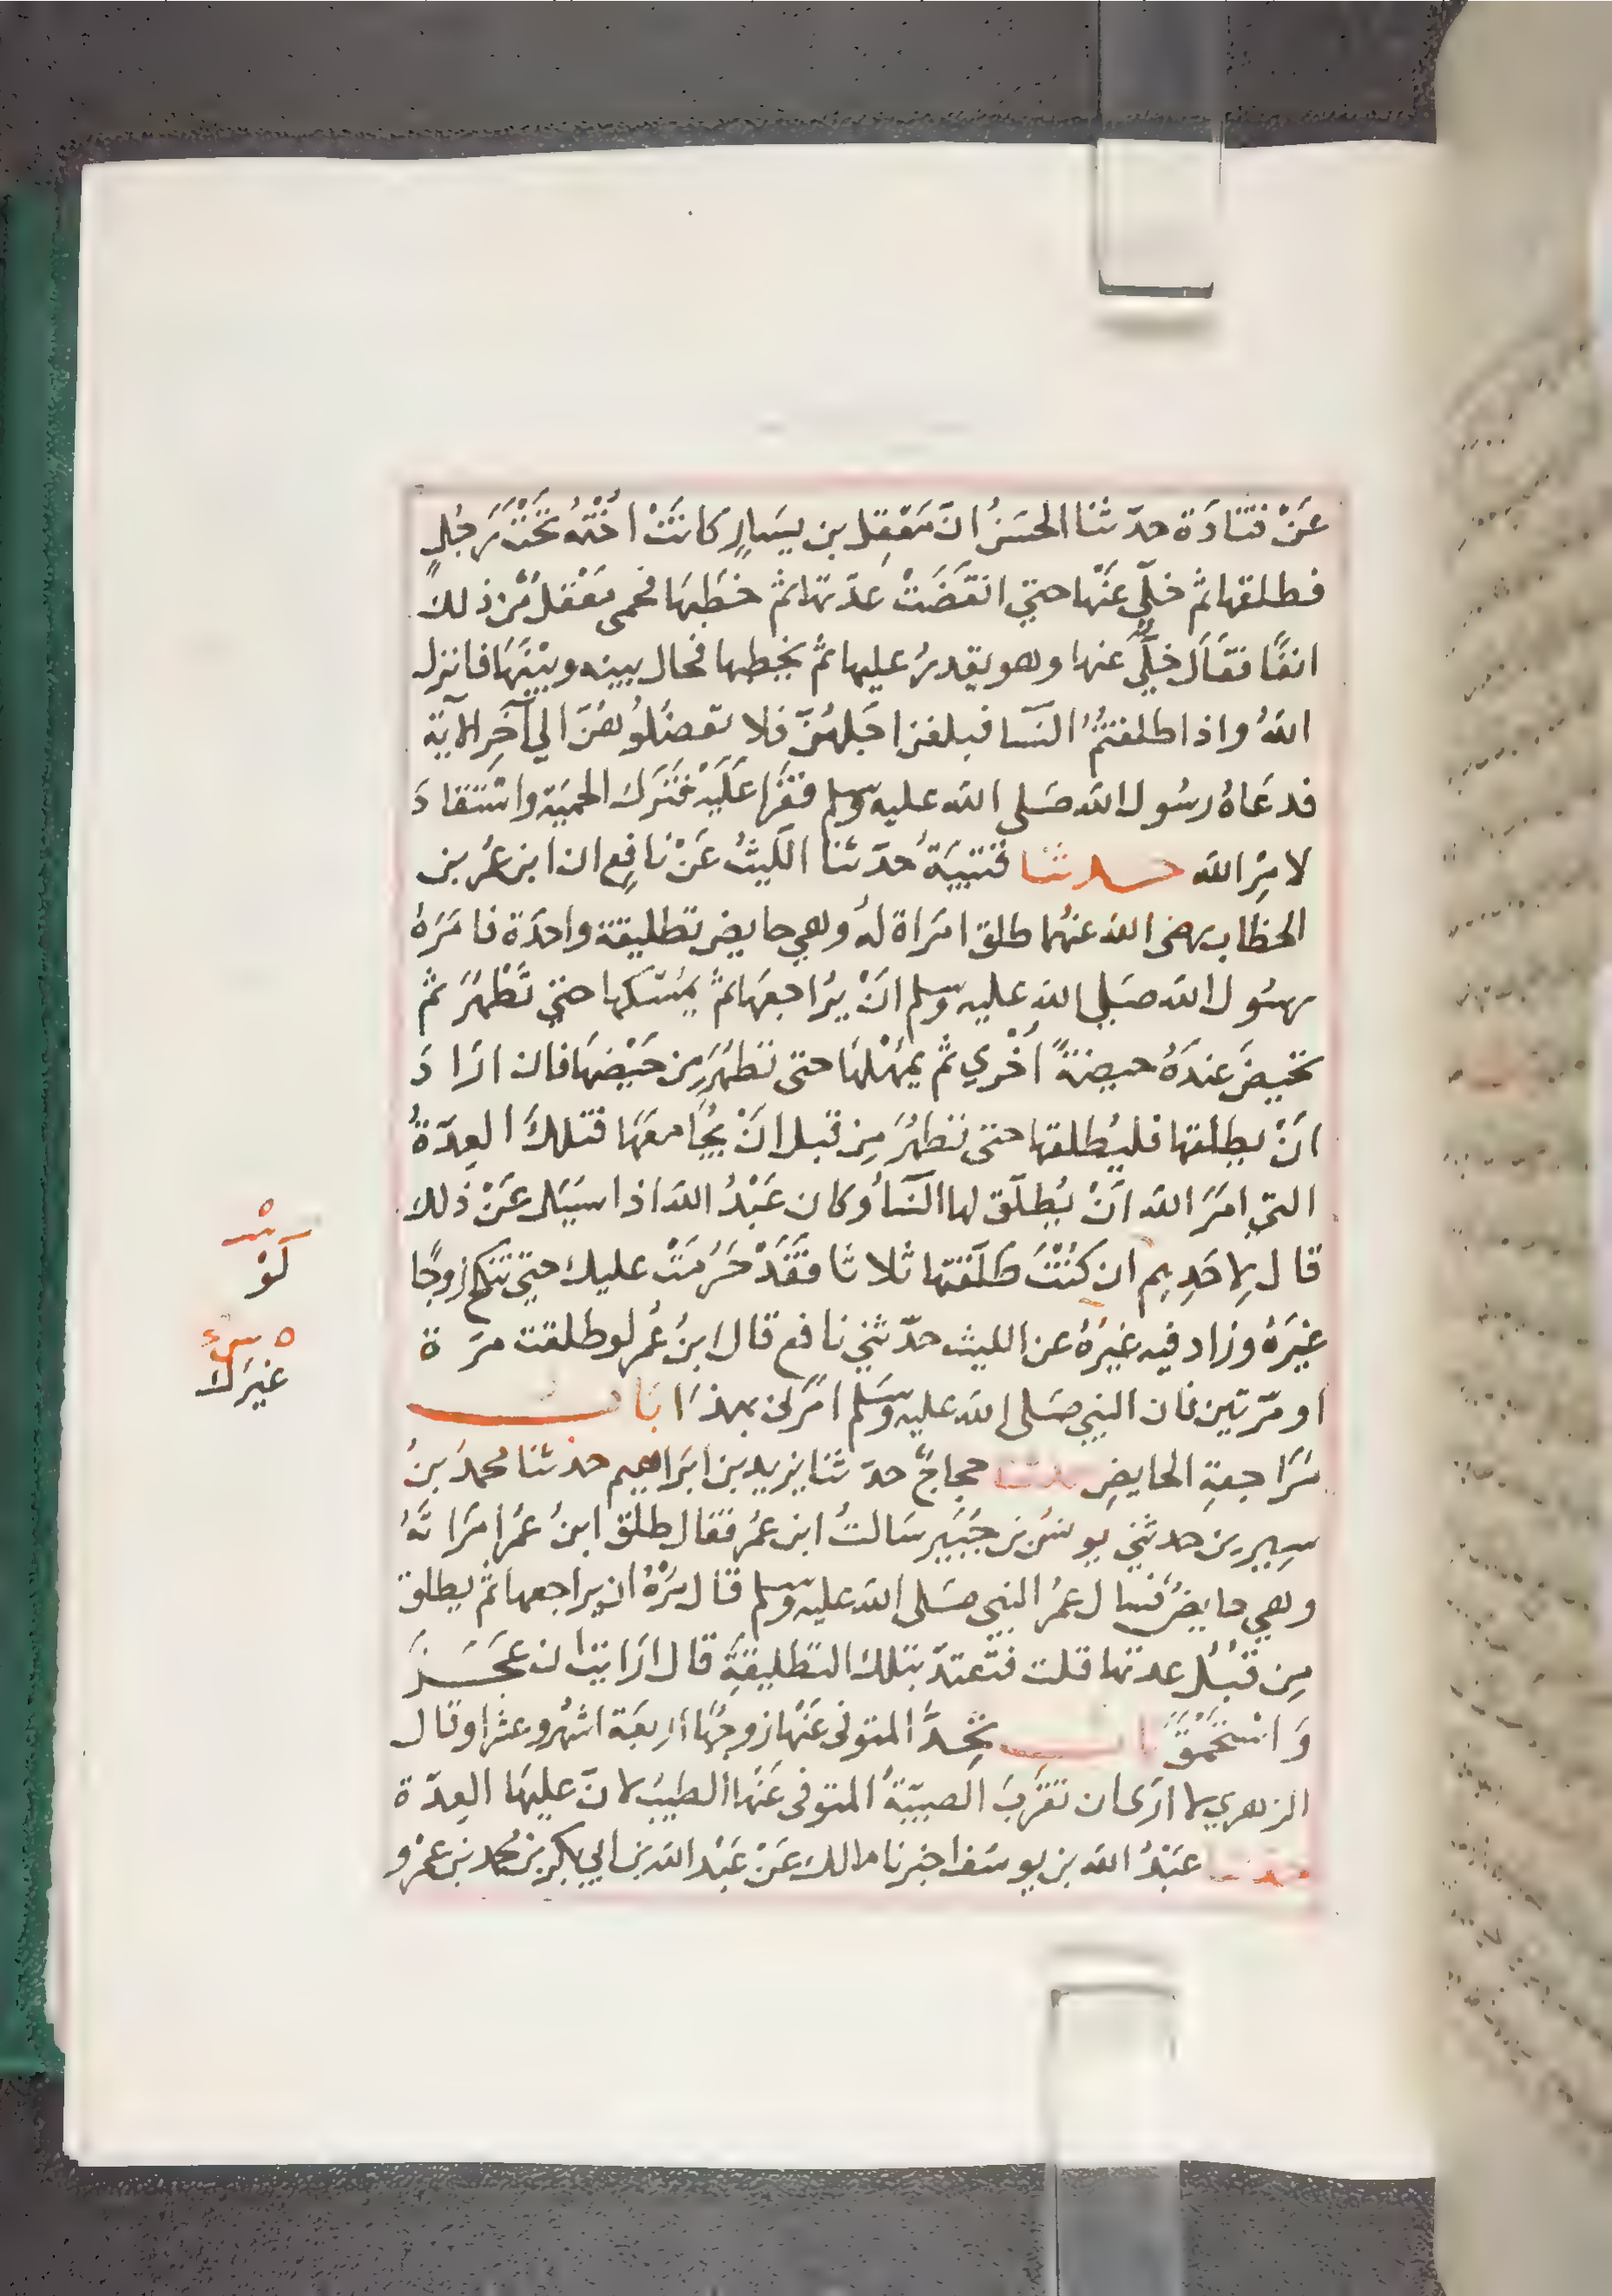 عَنْ قتَادَة حدّثنا الحسَنُ انَّ مَعْقِل بن يسَارٍ كانَتْ اُخْتُهُ تَحْتَ رَجُلٍ
فطلقها ثم خلّي عَنْها حتي انقَضَتْ عدّتها ثم خطَبهَا فحمى مَعْقلٌ مْن ذلك
انفًا فقَالَ خلّي عنها وهو يقدرُ عليها ثم يخطبها فحال بينه وبيْنَهَا فانزل
اللهُ واذا طلقتُمُ النسَا فبلغن اجَلهُنّ فلا تعضُلُوهُنّ الي آخَرِ الآيَة
فدعَاهُ رسُول الله صَلى الله عليه وسلم فقرَا عَلَيْه فَتَرَك الحميَة واسْتَقادَ
لامْرِ الله حدثنا قتيبَةُ حدّثنا اللّيثُ عَنْ نافِع ان ابن عُمر بن
الخطاب رضى الله عنهُما طلق امرَاة لهُ وهي حايض تطليقة واحدَة فامَرَهُ
رسُول الله صَلي الله عليه وسلم انْ يُرَاجعهَا ثمّ يُمْسكها حتي تَطْهُرَ ثم
تحيضَ عندَهُ حيضةً اُخْري ثم يمْهلهَا حتى تطهُرَ مِن حَيْضهَا فان ارَادَ
انْ يطلقها فليُطلقها حتى تطهُرَ مِن قبل انْ يُجَامعَهَا فتلك العِدّةُ
التي امَرَ الله انْ يُطلّق لها النّسَاُ وكان عَبْدُ الله اذا سُيَل عَنْ ذلك
قال لِاحَدِهِم ان كُنْتَ طَلّقتها ثلاثًا فَقَدْ حَرُمَتْ عليك حتي تنكح زوجًا
غيرَهُ وزاد فيه غيرُهُ عن الليث حدّثني نافع قال ابنُ عُمر لو طلقت مرّة
او مرّتين فان النبي صَلى الله عليه وسَلم امَرَنى بهذَا بَاب
مُرَاجعةِ الحايضِ حدثنا حجاجٌ حدّثنا يزيد بن ابرَاهيم حدثنا محمدُ بنُ
سِيرين حدثني يونسُ بن جُبَير سَالتُ ابن عمُر فقال طلق ابنُ عُمر امرَاتَهُ
وهي حايضٌ فسال عمرُ النبي صَلى الله عليه وسلم قال مُرْهُ ان يراجعها ثم يطلق
مِن قُبُل عدتها قلت فتعتدّ بتلك التطليقَةِ قال ارَايت ان عَجَزَ
وَاسْتَحْمَقَ باب تُحِدُّ المتوفى عَنْهَا زوجُهَا اربعَة اشهُر وعشرا وقال
الزهري لا ارَى ان تقرَبَ الصبيّةُ المتوفى عَنْهَا الطيبَ لانّ عليهَا العِدّة
حدثنا عَبْدُ الله بن يوسُف اخبرنا مالك عَنْ عَبْد الله بن ابي بكر بن محمد بن عمرو
لَوْ
غيرَك